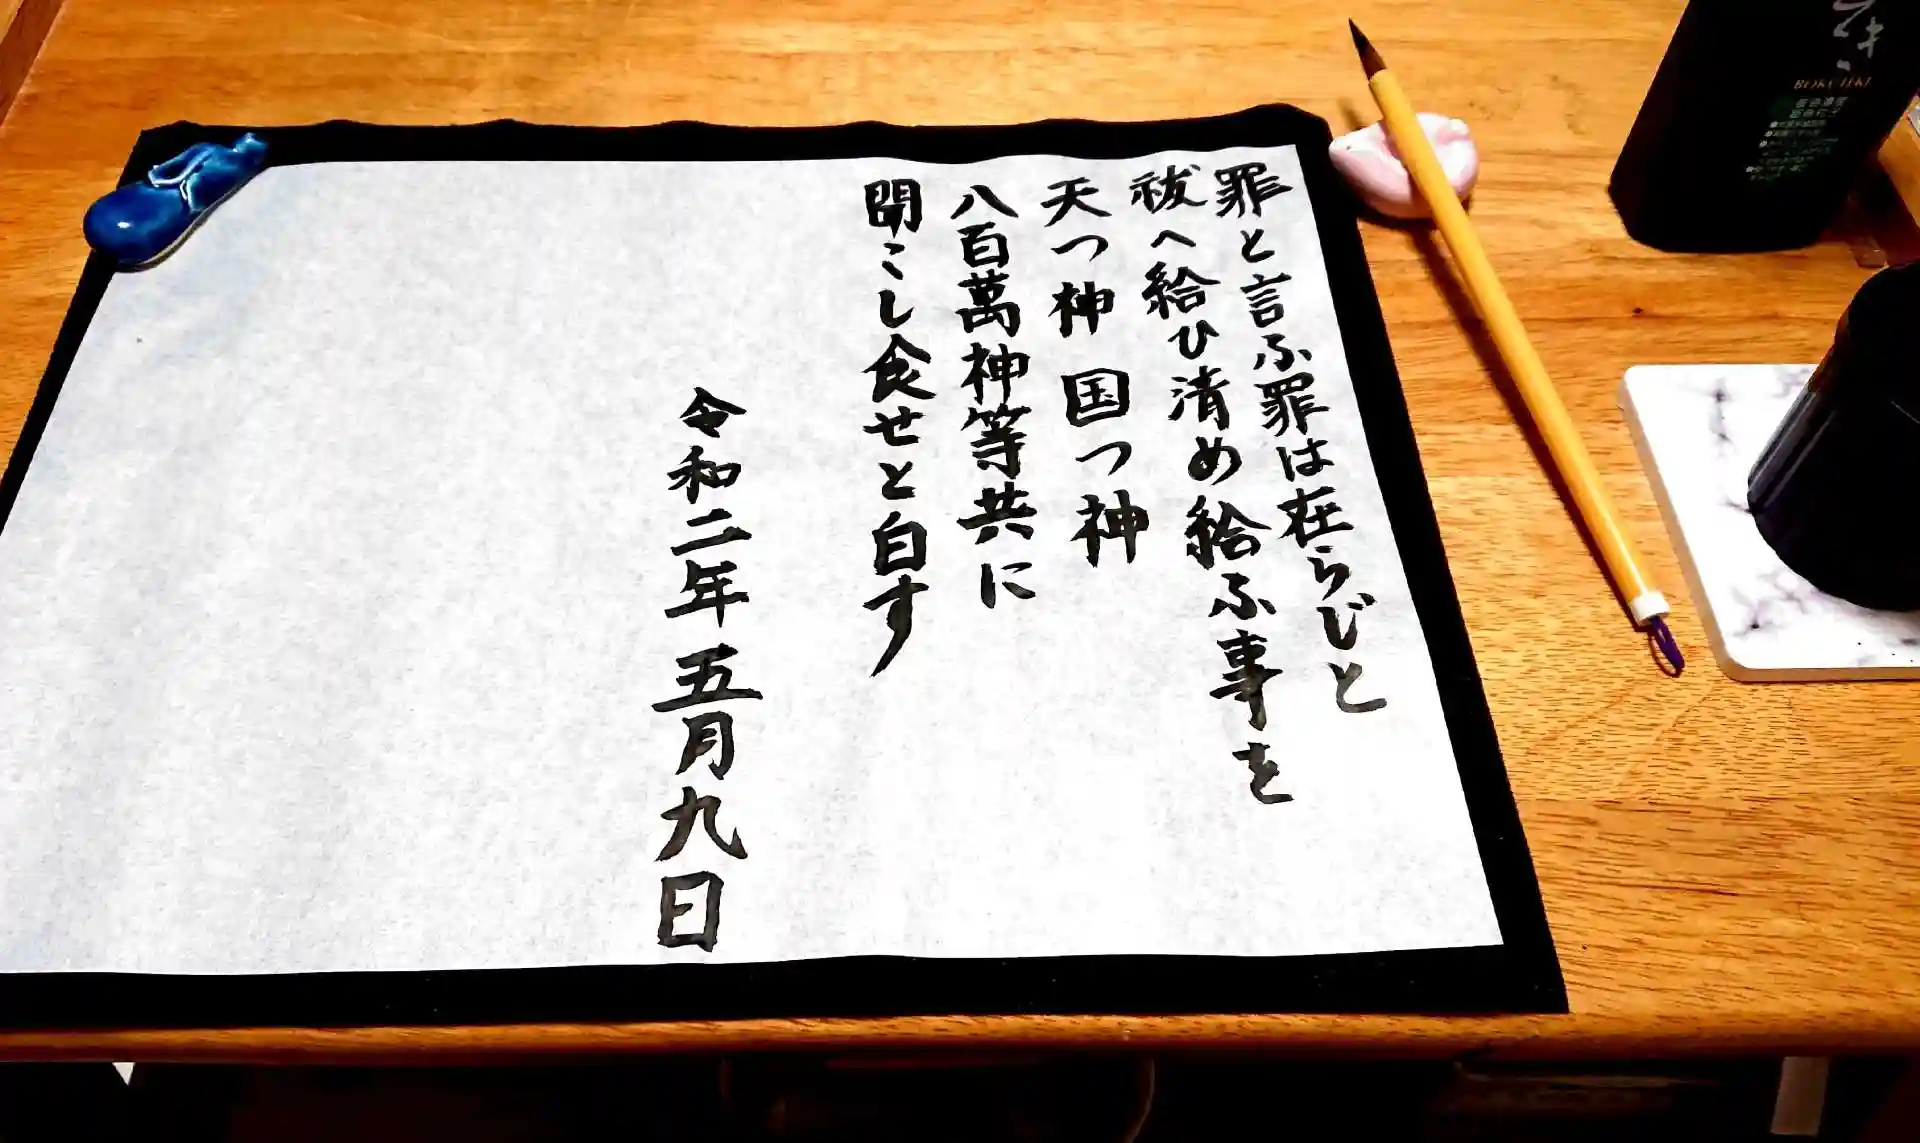 罪と言ふ罪は在らじと
祓へ給ひ清め給ふ事を
天つ神 国つ神
八百萬神等共に
聞こし食せと白す
令和二年五月九日
BOKUTEKI